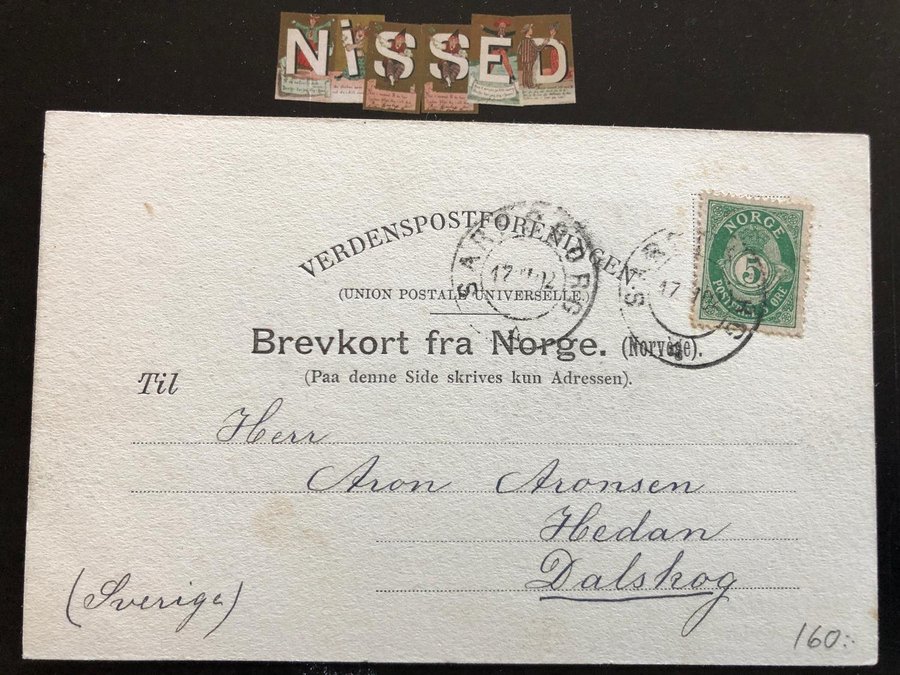 NiSSED
VERDENSPOSTFORENINGEN.
(UNION POSTALE UNIVERSELLE.)
Brevkort fra Norge. (Norvège).
(Paa denne Side skrives kun Adressen).
NORGE
5
POSTFRIM ØRE
SARPSBORG
17
02
Til
Herr
Aron Aronsen
Hedan
Dalskog
(Sverige)
160:-